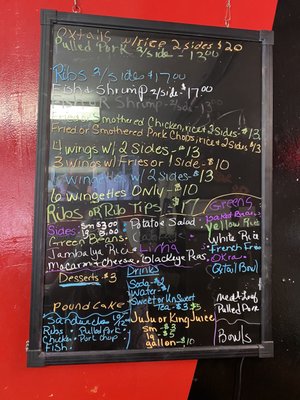 Oxtails w/rice 2 sides $20
Pulled Pork 2/side - 13.00
Ribs 2/side $17.00
Fish & Shrimp 2/side $17
Fried or Smothered Chicken, rice & 2 sides - $13
Fried or Smothered Pork Chops, rice & 2 sides $13
4 wings w/ 2 Sides - $13
3 wings w/ Fries or 1 side - $10
6 wingettes w/ 2 Sides - $13
6 wingettes ONLY - $10
Ribs OR Rib Tips - $17
Sides:
sm $3.00
lg.
Potatoe Salad
Green Beans
Jambalya Rice
Lima
Macaroni & Cheese
Blackeye Peas
Greens
Yellow Rice
White Rice
French Fries
Okra
Oxtail Bowl
Meat Loaf
Pulled Pork
Bowls
Desserts - $3
Pound Cake
Sandwiches
Ribs · Pulled Pork
Chicken · Pork Chop
Fish
Drinks
Soda - $2
Water - $1
Sweet or Un Sweet
Tea - $3 $5
JuJu or King Juice
sm - $3
lg - $5
gallon - $10